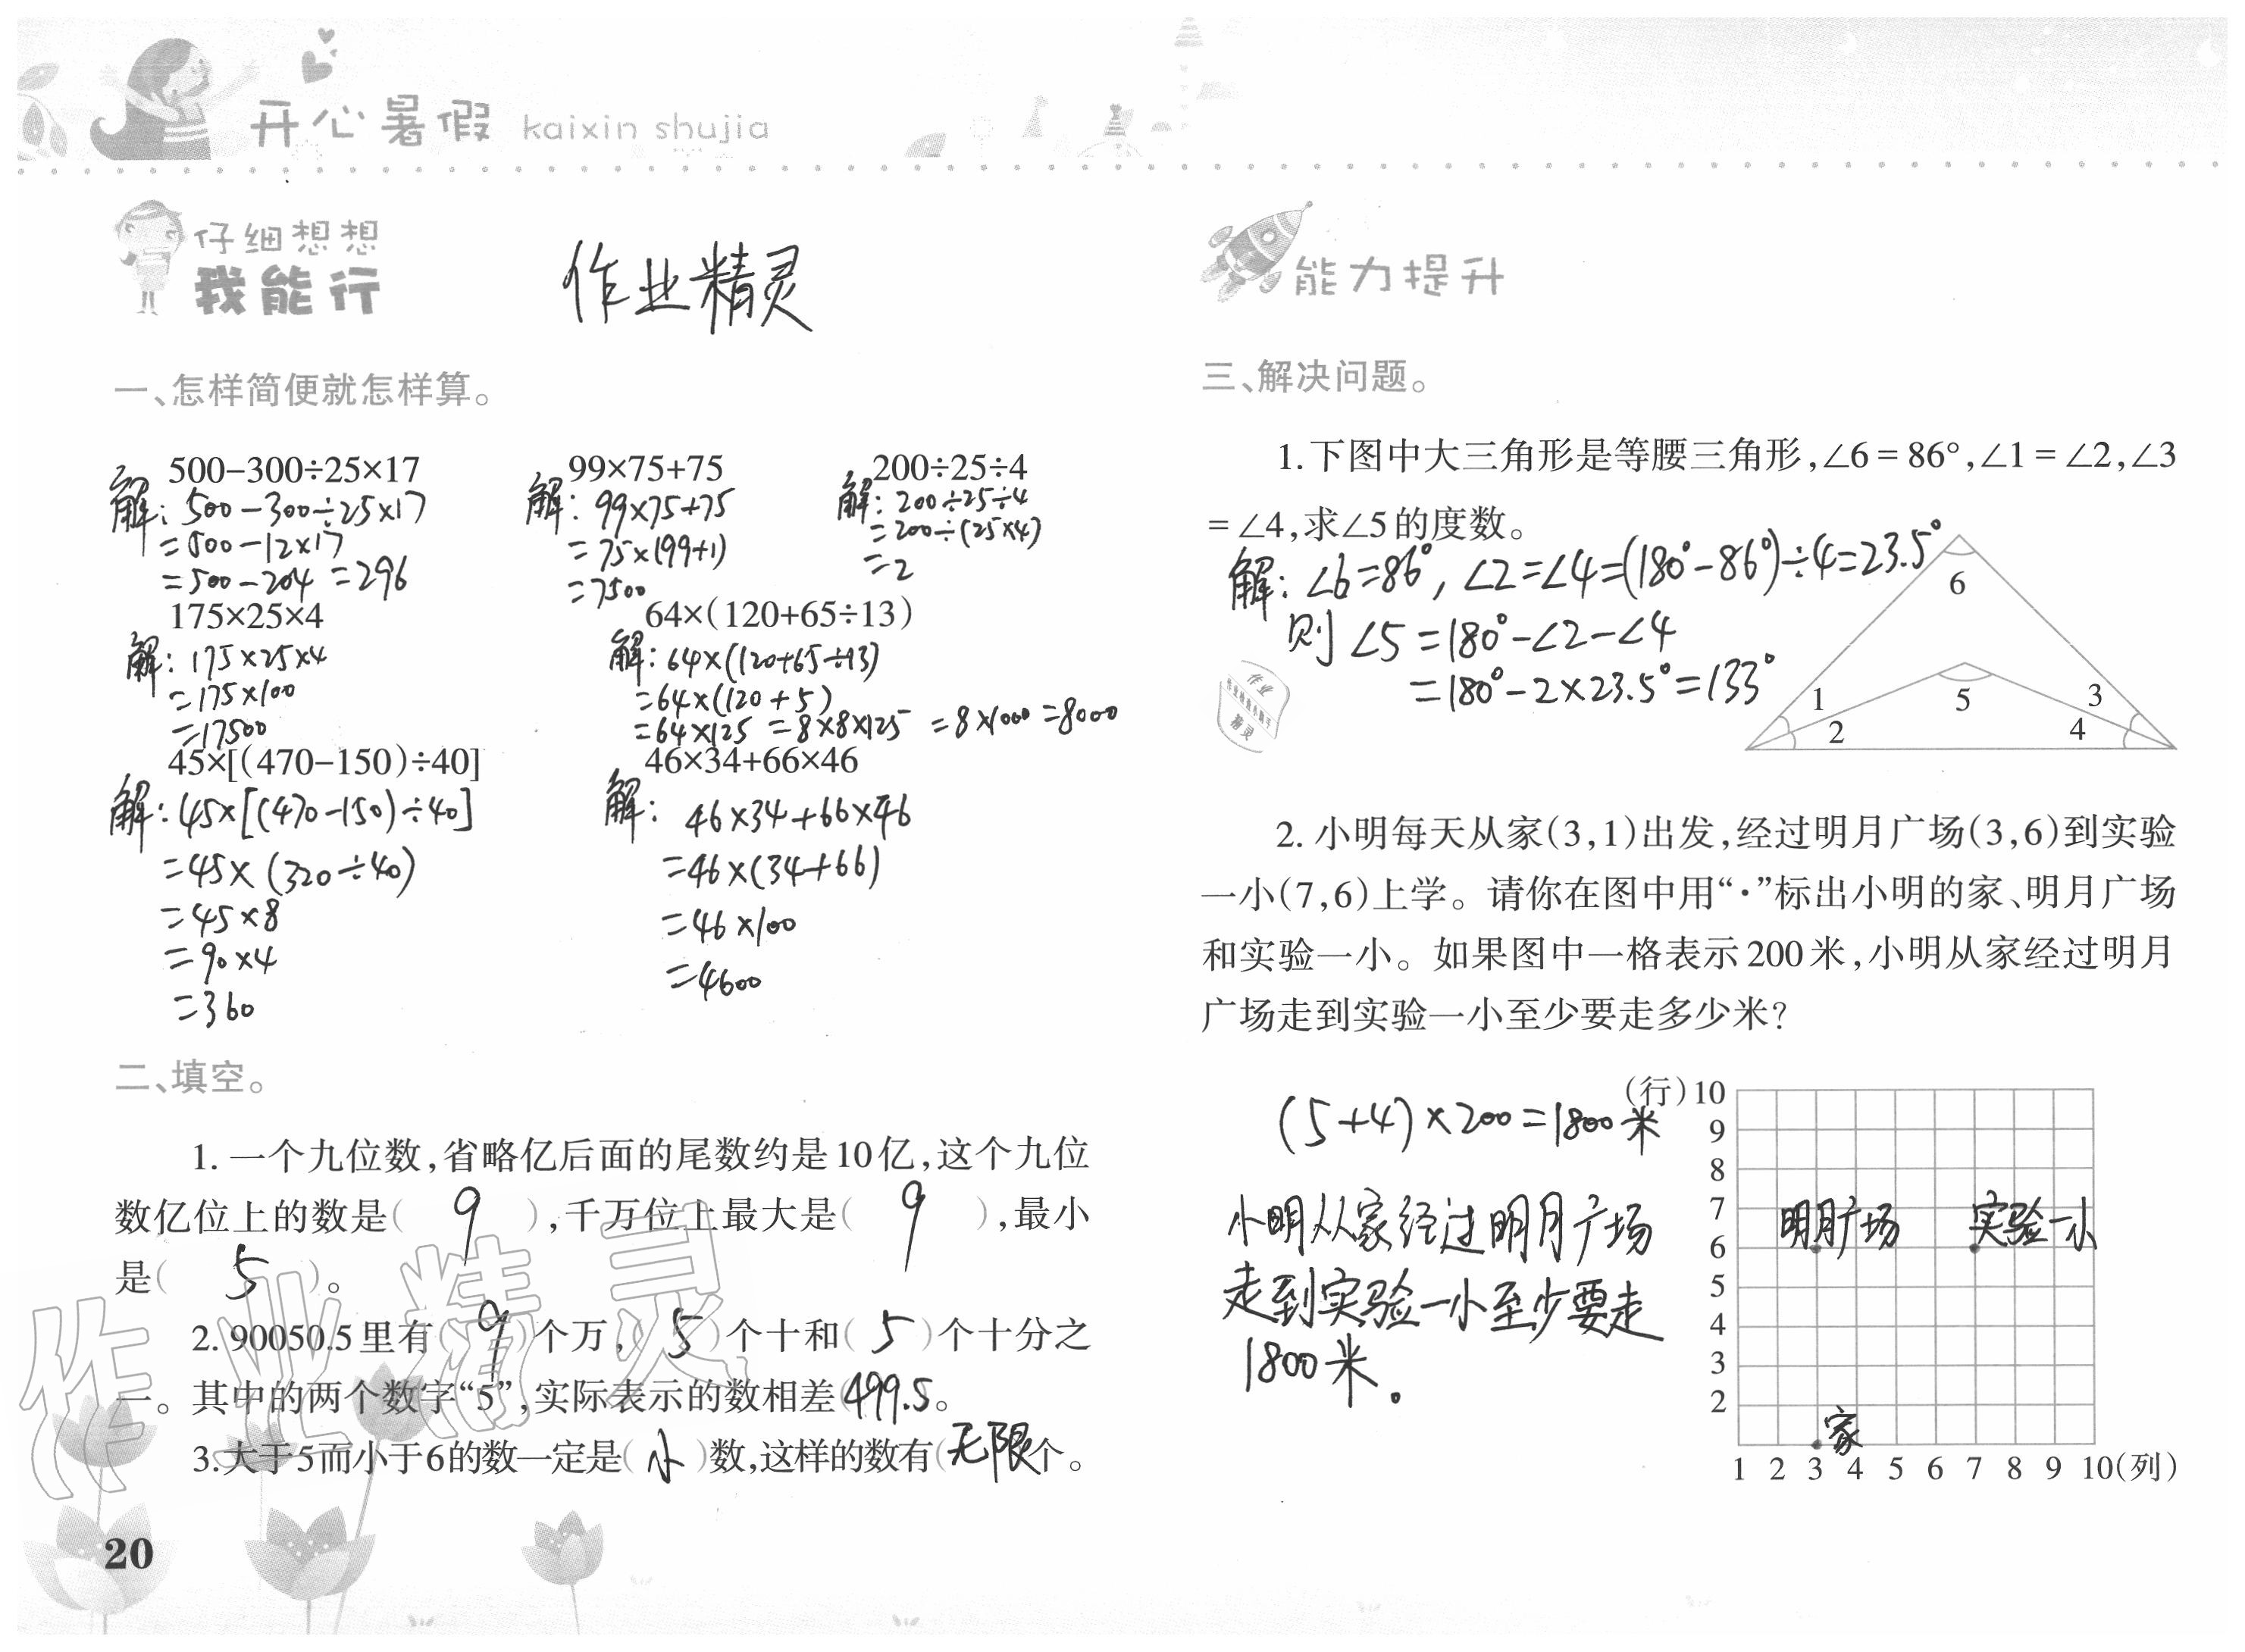 开心暑假 kaixin shujia
仔细想想
我能行
作业精灵
一、怎样简便就怎样算。
500−300÷25×17 99×75+75 200÷25÷4
解: 500−300÷25×17 解: 99×75+75 解: 200÷25÷4
=500−12×17 =75×(99+1) =200÷(25×4)
=500−204 =296 =7500 =2
175×25×4 64×(120+65÷13)
解: 175×25×4 解: 64×(120+65÷13)
=175×100 =64×(120+5)
=17500 =64×125 =8×8×125 =8×1000 =8000
45×[(470−150)÷40] 46×34+66×46
解: 45×[(470−150)÷40] 解: 46×34+66×46
=45×(320÷40) =46×(34+66)
=45×8 =46×100
=90×4 =4600
=360
二、填空。
1. 一个九位数,省略亿后面的尾数约是10亿,这个九位
数亿位上的数是( 9 ),千万位上最大是( 9 ),最小
是( 5 )。
2. 90050.5里有( 9 )个万,( 5 )个十和( 5 )个十分之
一。其中的两个数字“5”,实际表示的数相差(499.5。
3.大于5而小于6的数一定是( 小 )数,这样的数有(无限个。
作业精灵
20
能力提升
三、解决问题。
1.下图中大三角形是等腰三角形,∠6=86°,∠1=∠2,∠3
=∠4,求∠5的度数。
解: ∠6=86°, ∠2=∠4=(180°−86°)÷4=23.5°
则 ∠5=180°−∠2−∠4
=180°−2×23.5°=133°
6
1 5 3
2 4
作业
精灵
2. 小明每天从家(3,1)出发,经过明月广场(3,6)到实验
一小(7,6)上学。请你在图中用“·”标出小明的家、明月广场
和实验一小。如果图中一格表示200米,小明从家经过明月
广场走到实验一小至少要走多少米?
(5+4)×200=1800米
小明从家经过明月广场
走到实验一小至少要走
1800米。
(行)10
9
8
7
明月广场 实验一小
6
5
4
3
2
家
1 2 3 4 5 6 7 8 9 10(列)